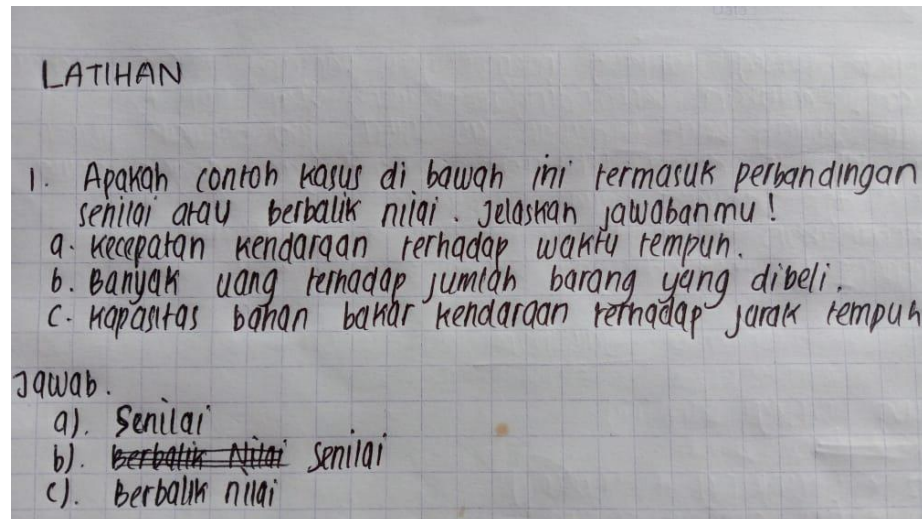 Date
LATIHAN
1. Apakah contoh kasus di bawah ini termasuk perbandingan
senilai atau berbalik nilai. Jelaskan jawabanmu!
a. Kecepatan kendaraan terhadap waktu tempuh.
b. Banyak uang terhadap jumlah barang yang dibeli.
c. Kapasitas bahan bakar kendaraan terhadap jarak tempuh
Jawab.
a). Senilai
b). Berbalik Nilai Senilai
c). Berbalik nilai